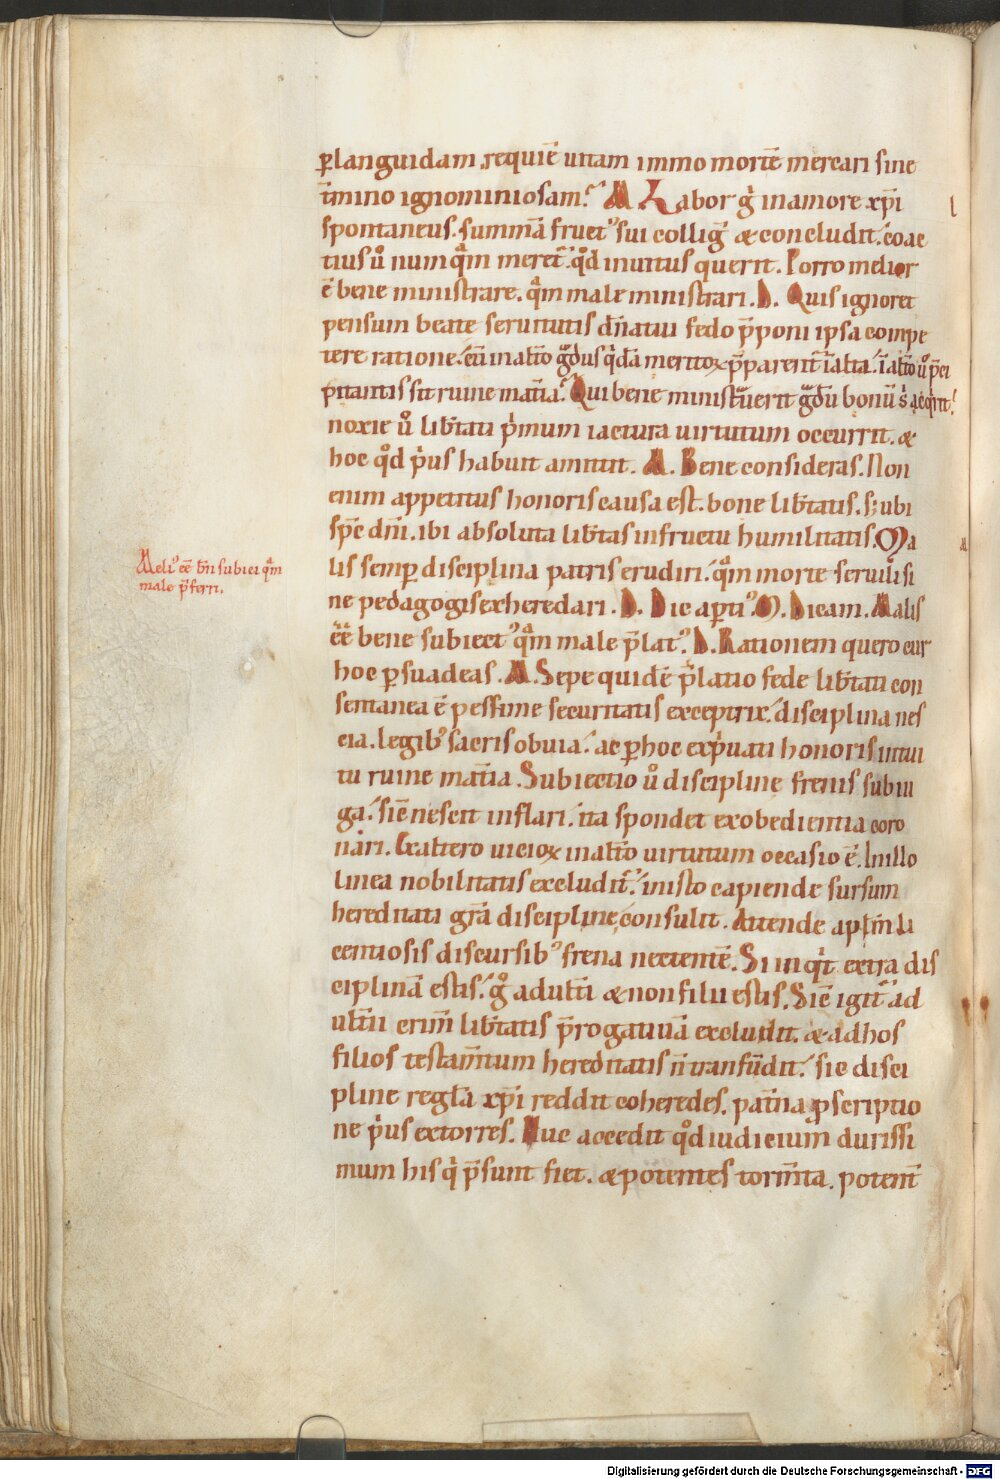 ꝑlanguidam requiē uitam immo mortē mereari sine
t̄mino ignominiosam. M Labor gͥ in amore xp̄i
spontaneus. summā fruct᷒ sui colligit & concludit. coac
tius u̇ numquā meret. qd̓ inuitus querit. Porro melior
ē bene ministrare. qᵃm male ministrari. D. Quis ignoret
pensum beate seruitutis dn̄atui fedo p̄poni ipsa compe
tere ratione. cū in alt̄o gͣdus qͥdā meritoꝝ p̄parent̄ in alt̄a. in alt̄o u̇ p̄ci
pitantis sit ruine mat̄ia. Qui bene ministrauerit gͣdū bonū s̓ acqͥrit.
noxie u̇ lib̄tati pͥmum iactura uirtutum occurrit. &
hoc qd̓ pͥus habuit amittit. M. Bene consideras. Non
enim appetitus honoris causa est. bone lib̄tatis. s; ubi
sp̄c dn̄i. ibi absoluta lib̄tas in fructu humilitatis. Ma
lis semp̱ disciplina patris erudiri. qᵃm morte seruili si
ne pedagogis exheredari. D. Dic ap̱ti᷒. M. Dicam. Malis
ēē bene subiect᷒ qᵃm male p̄lat᷒. D. Rationem quero cur
hoc ꝑsuadeas. M. Sepe quidē p̄latio fede lib̄tati con
sentanea ē pessime securitatis exceptrix. disciplina nes
cia. legib᷒ sacris obuia. ac ꝑ hoc expͥuati honoris intui
tu ruine mat̄ia. Subiectio u̇ discipline frenis subiu
ga. sic nescit inflari. ita spondet ex obedientia coro
nari. Ex alt̄ero uicioꝝ in alt̄o uirtutum occasio ē. In illo
linea nobilitatis excludit̄. in isto capiende sursum
hereditati gr̄a discipline consulit. Attende apl̄m li
centiosis discursib᷒ frena nectentē. Si inqͥt extra dis
ciplinā estis. gͦ adult̄i & non filii estis. Sic igit̄ ad
ult̄ii crim̄ lib̄tatis p̄rogatiuā excludit. & ad hos
filios testam̄tum hereditatis n̄ transfūdit. sic disci
pline regl̄a xp̄i reddit coheredes. pat̄na ꝓscriptio
ne pͥus extorres. Huc accedit qd̓ iudicium durissi
mum his qͥ p̄sunt fiet. & potentes torm̄ta. potent̄
Meli᷒ ēē bn̄ subici qᵃm
male p̄ferri.
Digitalisierung gefördert durch die Deutsche Forschungsgemeinschaft - DFG